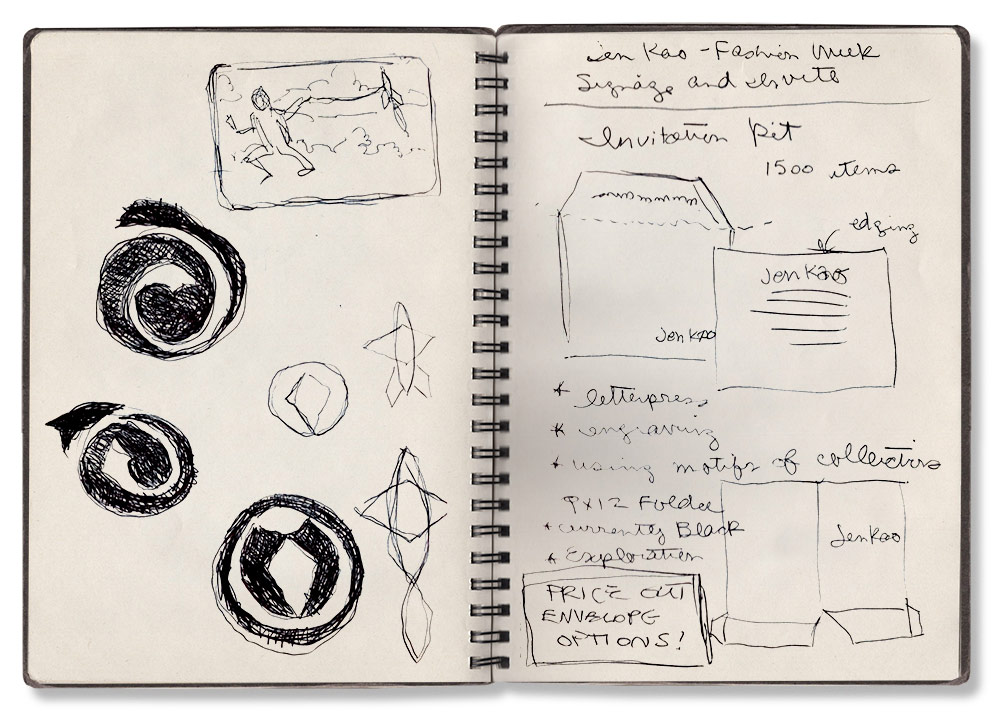 Jen Kao - Fashion Week
Signage and Invite
- Invitation Kit
1500 items
edging
Jen Kao
Jen Kao
* letterpress
* engraving
* using motifs of collection
9x12 Folder
* currently Black
* Exploration
Jen Kao
PRICE OUT
ENVELOPE
OPTIONS!